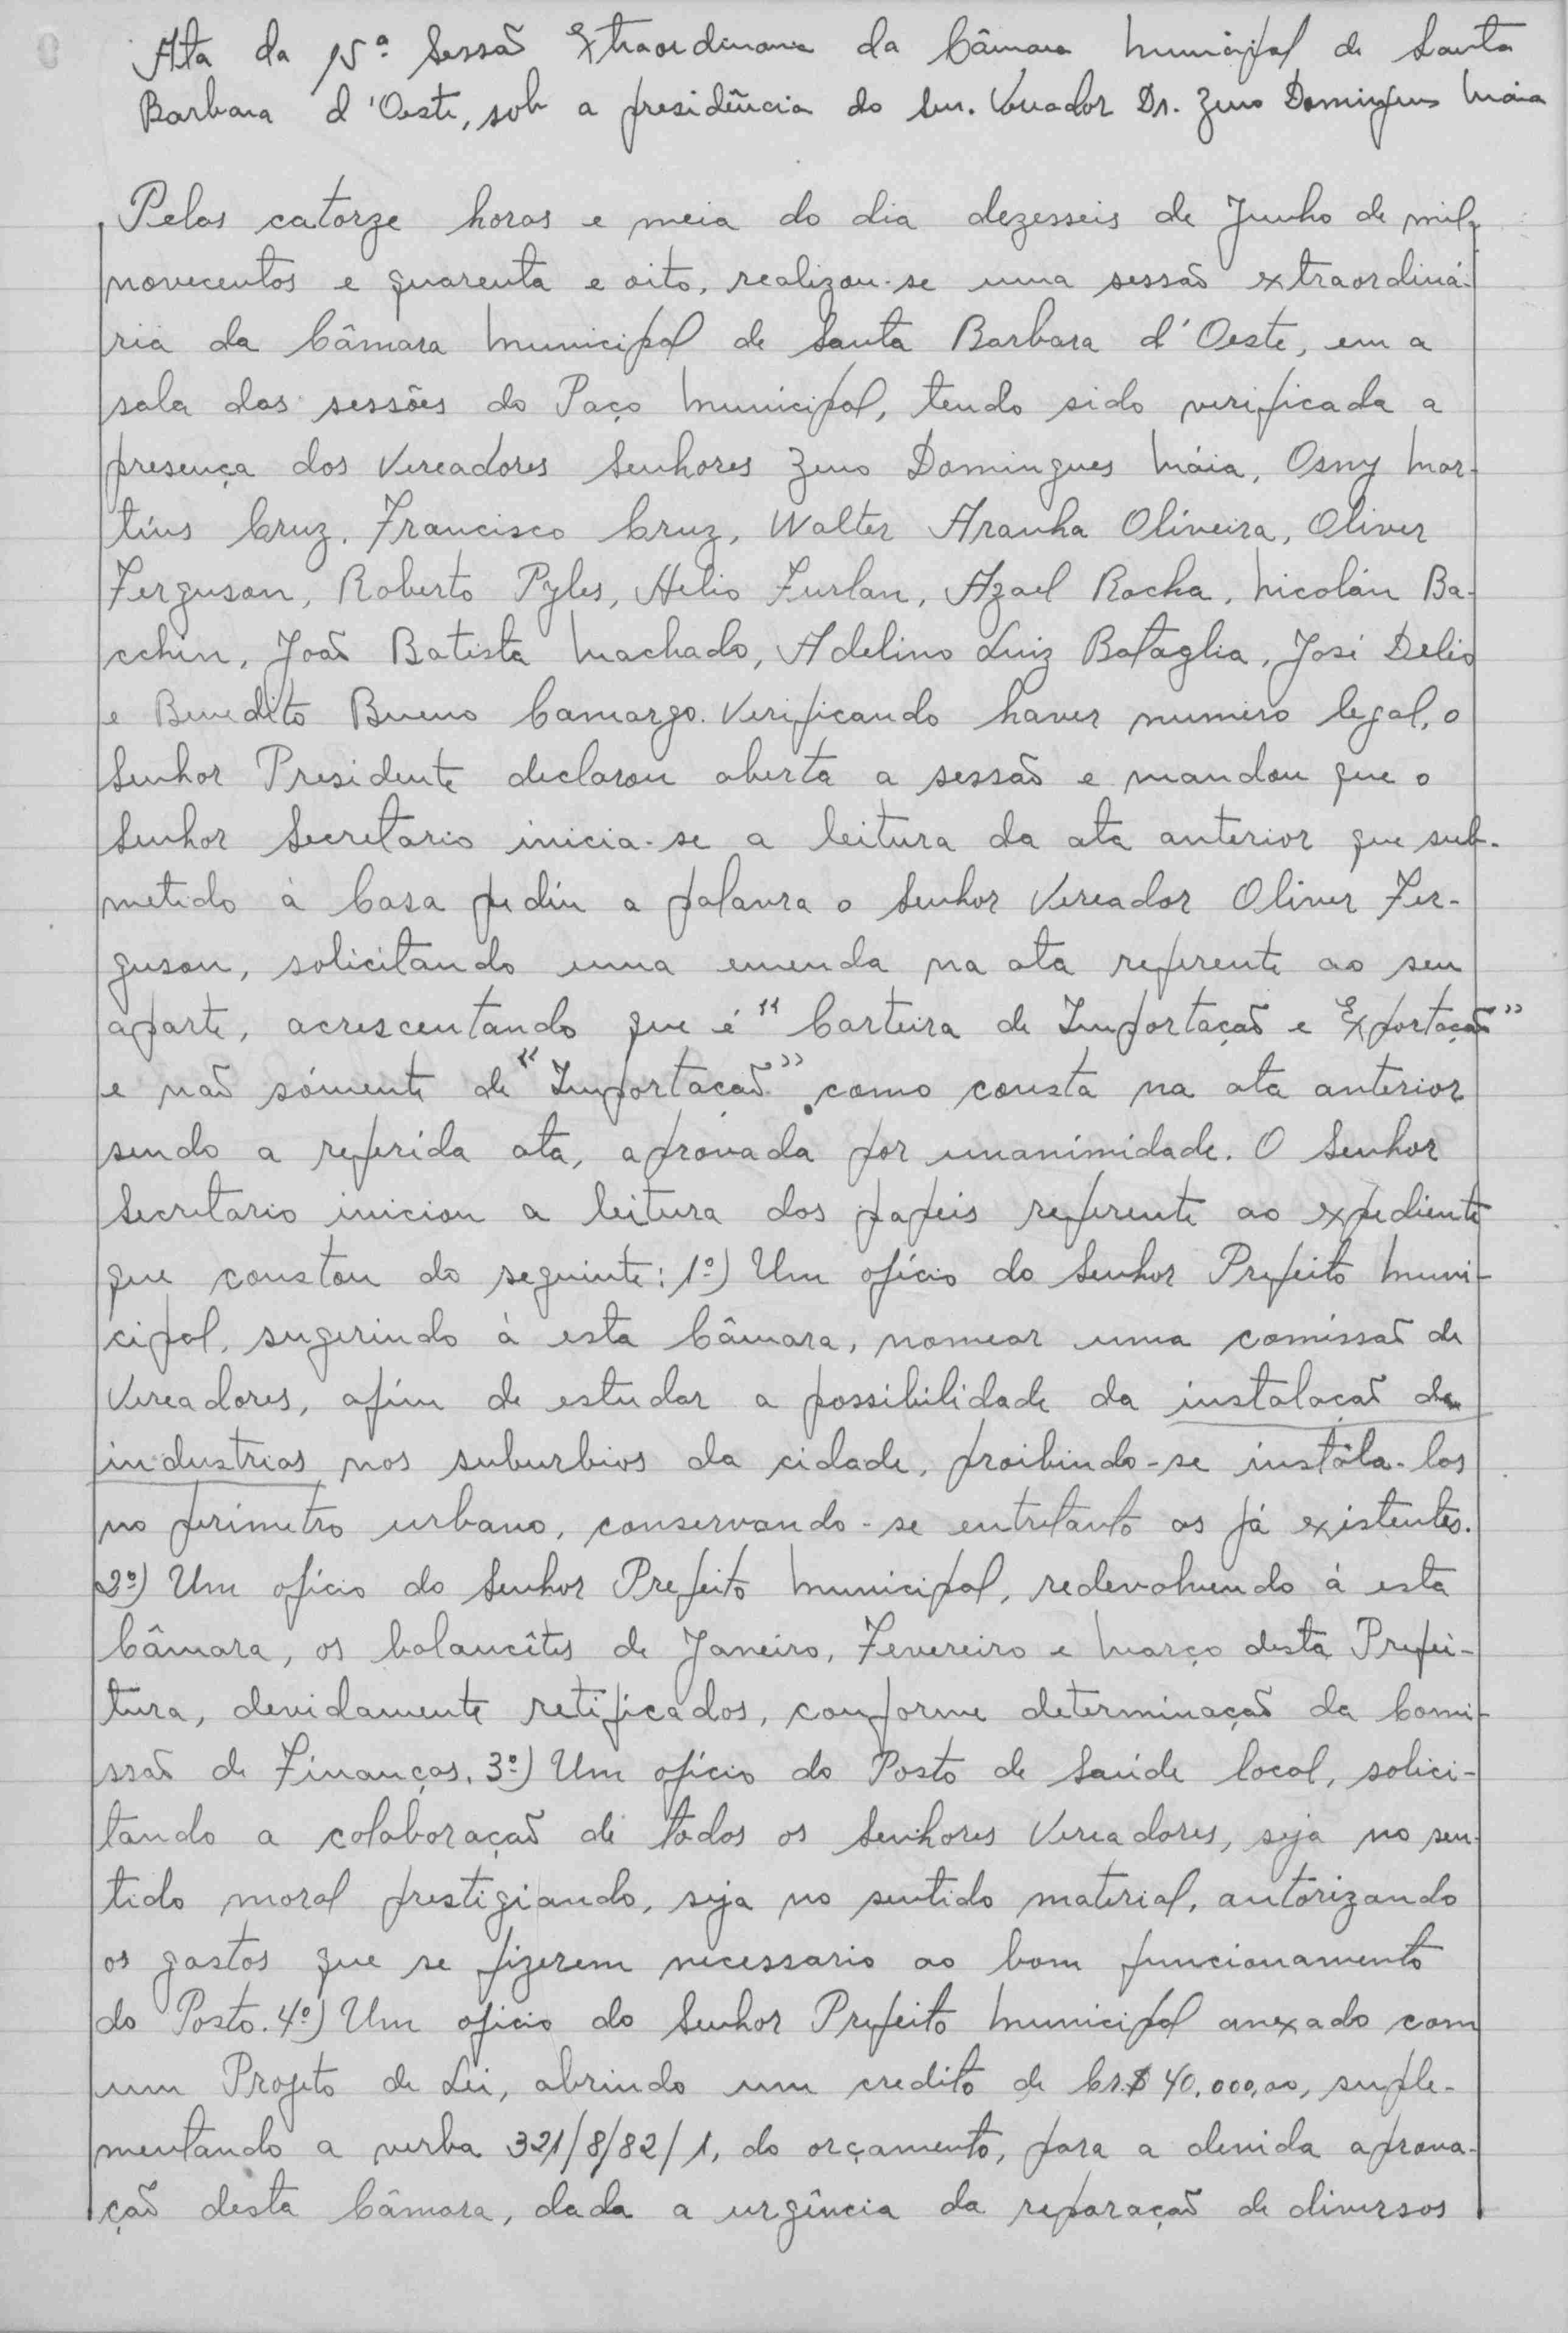 Ata da 15ª Sessão Extraordinaria da Câmara Municipal de Santa
Barbara d'Oeste, sob a presidência do Snr. Vereador Dr. Zeno Domingues Máia
Pelas catorze horas e meia do dia dezesseis de Junho de mil
novecentos e quarenta e oito, realizou-se uma sessão extraordiná-
ria da Câmara Municipal de Santa Barbara d'Oeste, em a
sala das sessões do Paço Municipal, tendo sido verificada a
presença dos Vereadores Senhores Zeno Domingues Máia, Osny Mar-
tins Cruz, Francisco Cruz, Walter Aranha Oliveira, Oliver
Ferguson, Roberto Pyles, Helio Furlan, Azael Rocha, Nicoláu Ba-
cchin, João Batista Machado, Adelino Luiz Bataglia, José Delio
e Benedito Bueno Camargo. Verificando haver numero legal, o
Senhor Presidente declarou aberta a sessão e mandou que o
Senhor Secretario inicia-se a leitura da ata anterior que sub-
metido à Casa pediu a palavra o Senhor Vereador Oliver Fer-
guson, solicitando uma emenda na ata referente ao seu
aparte, acrescentando que é "Carteira de Importação e Exportação"
e não sómente de "Importacão" como consta na ata anterior
sendo a referida ata, aprovada por unanimidade. O Senhor
Secretario iniciou a leitura dos papeis referente ao expediente
que constou do seguinte: 1º) Um ofício do Senhor Prefeito Muni-
cipal, sugerindo à esta Câmara, nomear uma comissão de
Vereadores, afim de estudar a possibilidade da instalacão de
industrias nos suburbios da cidade, proibindo-se instála-las
no perimetro urbano, conservando-se entretanto as já existentes.
2º) Um ofício do Senhor Prefeito Municipal, redevolvendo á esta
Câmara, os balancêtes de Janeiro, Fevereiro e Março desta Prefei-
tura, devidamente retificados, conforme determinação da Comi-
ssão de Finanças. 3º) Um ofício do Posto de Saúde local, solici-
tando a colaboração de todos os Senhores Vereadores, seja no sen-
tido moral prestigiando, seja no sentido material, autorizando
os gastos que se fizerem necessario ao bom funcionamento
do Posto. 4º) Um oficio do Senhor Prefeito Municipal anexado com
um Projeto de Lei, abrindo um credito de Cr.$ 40.000,00, suple-
mentando a verba 321/8/82/1, do orçamento, para a devida aprova-
ção desta Câmara, dada a urgência da reparação de diversos